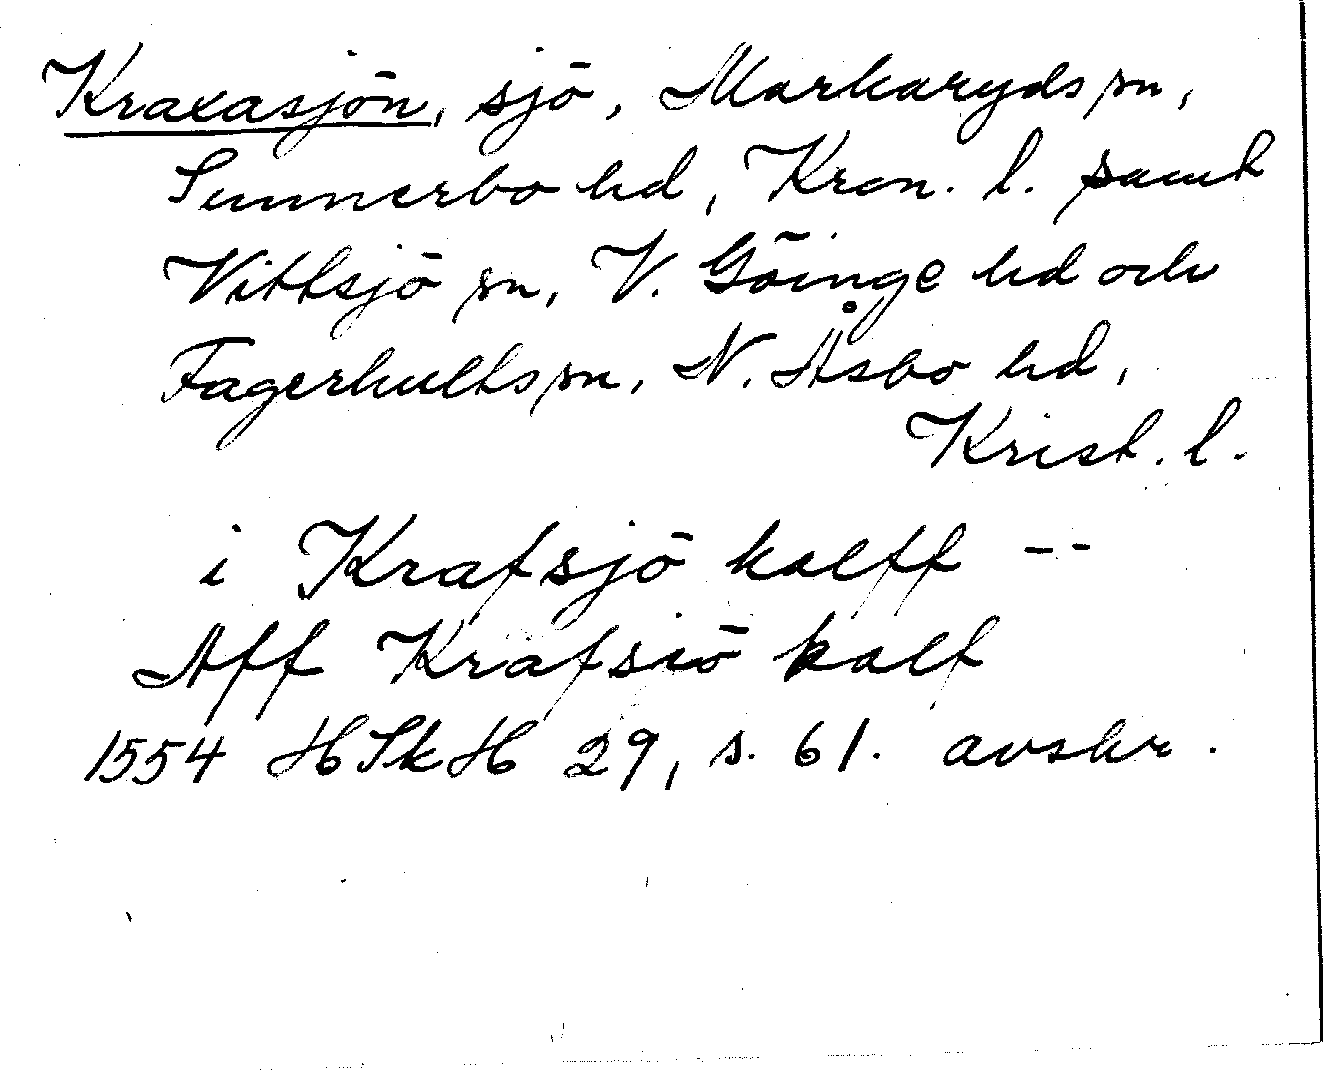 Kraxasjön, sjö, Markaryds sn,
Sunnerbo hd, Kron. l. samt
Vittsjö sn, V. Göinge hd och
Fagerhults sn, N. Åsbo hd,
Krist. l.
i Krafsjö kalff --
Aff Krafsiö kalf
1554 HSkH 29, s. 61. avskr.